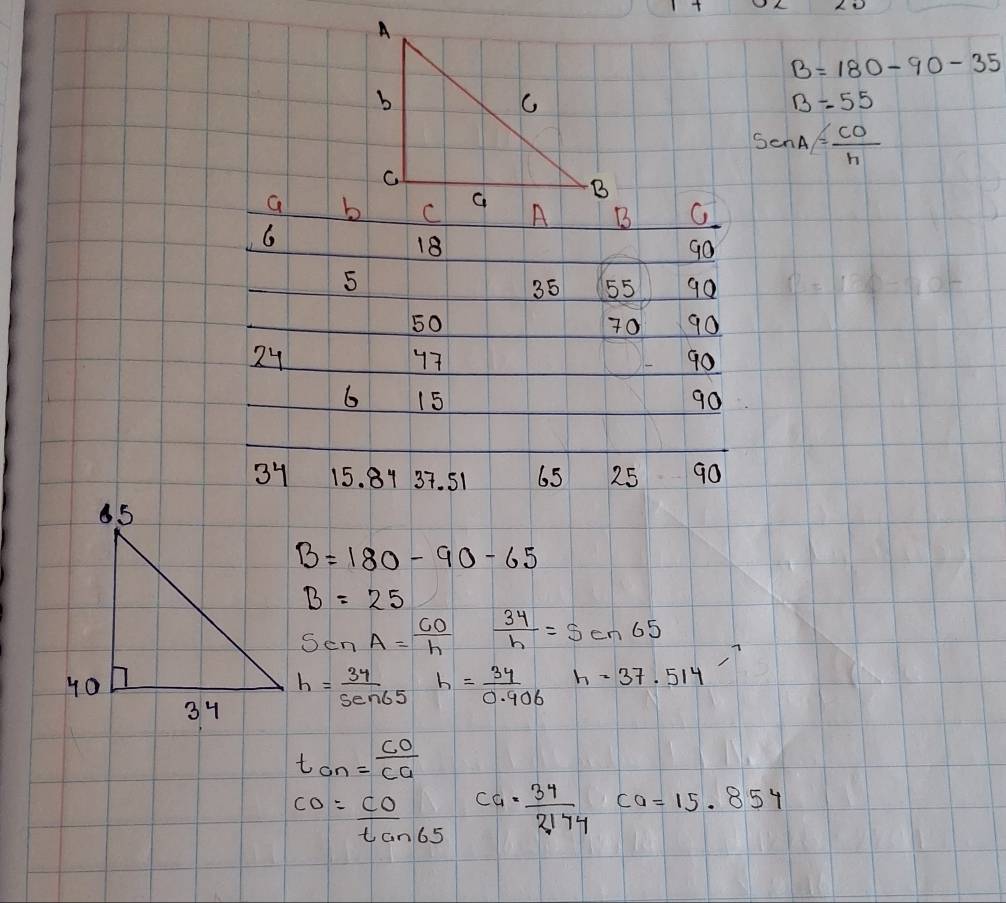 A
b c
C a B
B = 180 - 90 - 35
B = 55
Sen A = CO/h
a b c A B C
6 18 90
5 35 55 90
50 70 90
24 47 90
6 15 90
34 15.84 37.51 65 25 90
65
90
34
B = 180 - 90 - 65
B = 25
Sen A = CO/h 34/h = Sen 65
h = 34/sen65 h = 34/0.906 h = 37.514
tan = CO/ca
co = CO/tan65 ca = 34/2.144 ca = 15.854